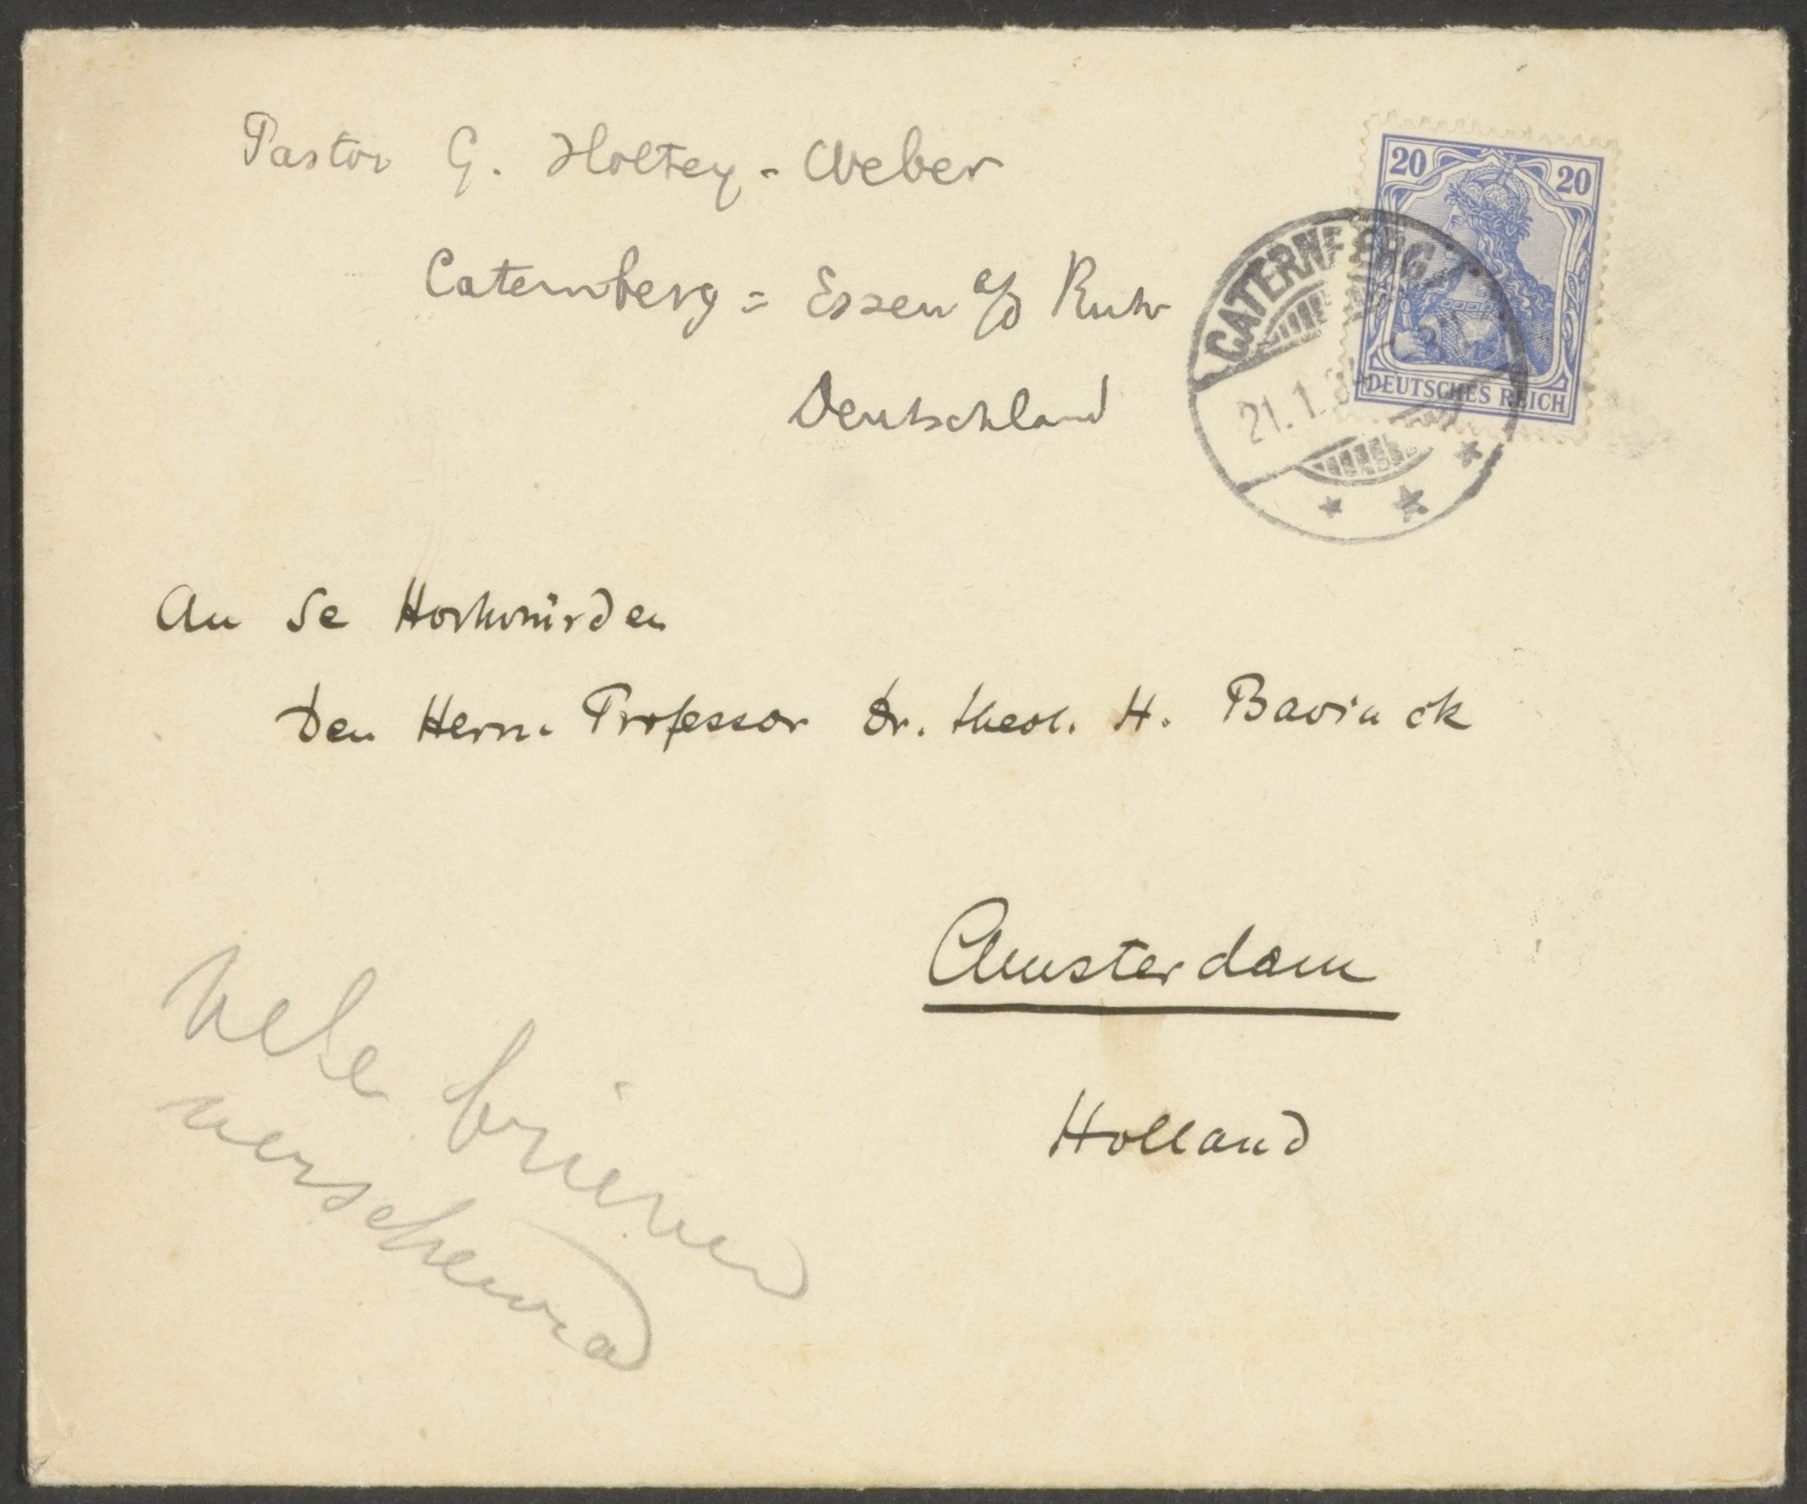 Pastor G. Holtey-Weber
Caternberg = Essen a/d Ruhr
Deutschland
20 20
DEUTSCHES REICH
CATERNBERG
21.1.
An Se Hochwürden
Den Herrn Professor Dr. theol. H. Bavinck
Amsterdam
Holland
vele brieven
verscheurd